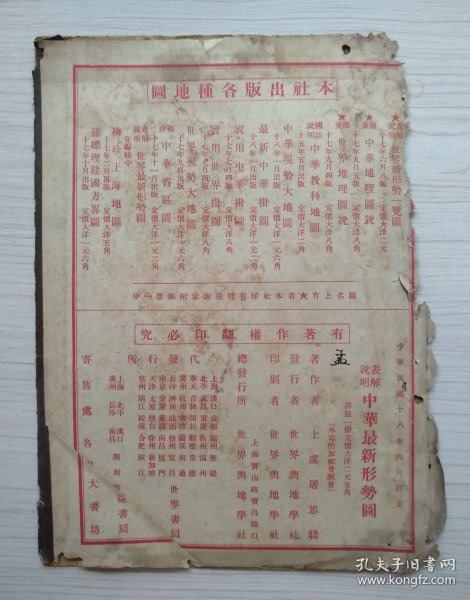 本社出版各種地圖
表解說明世界新形勢一覽圖
十七年六月八版 定價大洋二元
中華地理圖說
十七年二月五版 定價大洋八角
世界地理圖說
十七年九月四版 定價大洋八角
國語說明中華教科地圖
十五年五月出版 定價大洋八角
中華現勢大地圖
十八年一月出版 定價大洋
最新中華掛圖
十八年一月出版 定價大洋一元二角
實用中華掛圖
十七年七月四版 定價大洋八角
實用世界掛圖
十七年九月四版 定價大洋八角
世界現勢大地圖
十七年九月四版 定價大洋一元六角
中華省區圖
十七年十一月出版 定價大洋一元二角
表解說明世界最新形勢圖
在編輯中
袖珍上海地圖
十七年九月出版 定價大洋五角
孫總理建國方畧圖
十七年十月出版 定價大洋一元六角
圖名上有★者本社印有樣張函索附郵票一分
有著作權翻印必究
中華民國十八年四月訂正
表解說明中華最新形勢圖
洋裝一冊定價大洋二元五角
(外埠酌加郵費匯費)
孟
著作者 上虞屠思聰
發行者 世界輿地學社
印刷者 世界輿地學社
上海寶山路寶昌路口
總發行所 世界輿地學社
代發行所
世界書局
寄售處
上海 北平 漢口
廣州 長沙 南昌
開封
益書局
各大書坊
孔夫子旧书网
www.kongfz.com